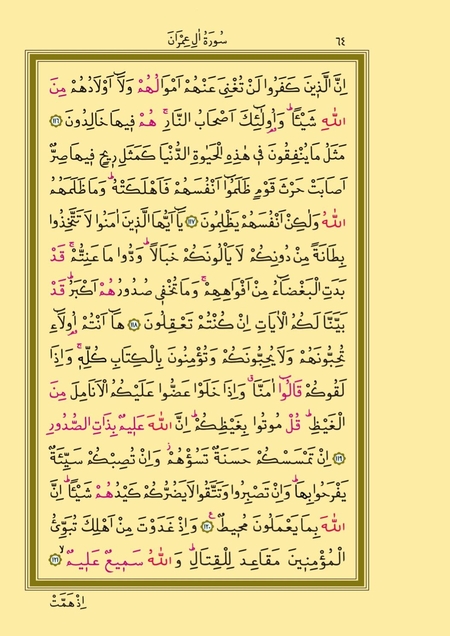 ٦٤
سُورَةُ اٰلِ عِمْرٰانَ
اِنَّ الَّذ۪ينَ كَفَرُوا لَنْ تُغْنِيَ عَنْهُمْ اَمْوَالُهُمْ وَلَٓا اَوْلَادُهُمْ مِنَ
اللّٰهِ شَيْـًٔاۜ وَاُو۬لٰٓئِكَ اَصْحَابُ النَّارِۚ هُمْ ف۪يهَا خَالِدُونَ ﴿١١٦﴾
مَثَلُ مَا يُنْفِقُونَ ف۪ي هٰذِهِ الْحَيٰوةِ الدُّنْيَا كَمَثَلِ ر۪يحٍ ف۪يهَا صِرٌّ
اَصَابَتْ حَرْثَ قَوْمٍ ظَلَمُٓوا اَنْفُسَهُمْ فَاَهْلَكَتْهُۜ وَمَا ظَلَمَهُمُ
اللّٰهُ وَلٰكِنْ اَنْفُسَهُمْ يَظْلِمُونَ ﴿١١٧﴾ يَٓا اَيُّهَا الَّذ۪ينَ اٰمَنُوا لَا تَتَّخِذُوا
بِطَانَةً مِنْ دُونِكُمْ لَا يَأْلُونَكُمْ خَبَالًاۜ وَدُّوا مَا عَنِتُّمْۚ قَدْ
بَدَتِ الْبَغْضَٓاءُ مِنْ اَفْوَاهِهِمْۚ وَمَا تُخْف۪ي صُدُورُهُمْ اَكْبَرُۜ قَدْ
بَيَّنَّا لَكُمُ الْاٰيَاتِ اِنْ كُنْتُمْ تَعْقِلُونَ ﴿١١٨﴾ هَٓا اَنْتُمْ اُو۬لَٓاءِ
تُحِبُّونَهُمْ وَلَا يُحِبُّونَكُمْ وَتُؤْمِنُونَ بِالْكِتَابِ كُلِّه۪ۚ وَاِذَا
لَقُوكُمْ قَالُٓوا اٰمَنَّاۗ وَاِذَا خَلَوْا عَضُّوا عَلَيْكُمُ الْاَنَامِلَ مِنَ
الْغَيْظِۜ قُلْ مُوتُوا بِغَيْظِكُمْۜ اِنَّ اللّٰهَ عَل۪يمٌ بِذَاتِ الصُّدُورِ
﴿١١٩﴾ اِنْ تَمْسَسْكُمْ حَسَنَةٌ تَسُؤْهُمْۘ وَاِنْ تُصِبْكُمْ سَيِّئَةٌ
يَفْرَحُوا بِهَاۜ وَاِنْ تَصْبِرُوا وَتَتَّقُوا لَا يَضُرُّكُمْ كَيْدُهُمْ شَيْـًٔاۜ اِنَّ
اللّٰهَ بِمَا يَعْمَلُونَ مُح۪يطٌ۟ ﴿١٢٠﴾ وَاِذْ غَدَوْتَ مِنْ اَهْلِكَ تُبَوِّئُ
الْمُؤْمِن۪ينَ مَقَاعِدَ لِلْقِتَالِۜ وَاللّٰهُ سَم۪يعٌ عَل۪يمٌۙ ﴿١٢١﴾
اِذْ هَمَّتْ